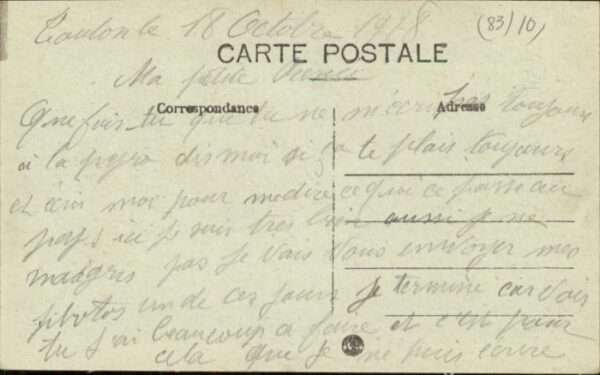 Toulon le 18 Octobre 1918
(83/10)
CARTE POSTALE
Ma petite
Correspondance
Adresse
Que fais tu que tu ne m'écris pas toujours
a la dis moi si ça te plait toujours
et écris moi pour me dire ce qui ce passe au
pays ici je suis tres bien aussi je ne
maigris pas je vais vous envoyer mes
photos un de ces jours je termine car vois
tu j'ai beaucoup a faire et c'est pour
cela que je ne puis écrire